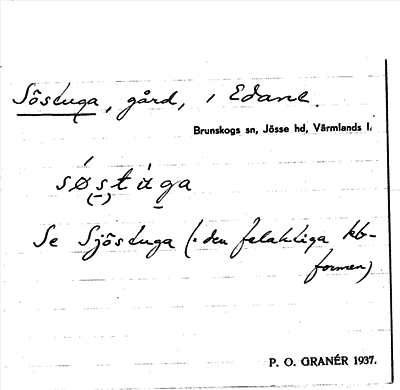 Sösluga, gård, i Edane.
Brunskogs sn, Jösse hd, Värmlands l.
søstuga
Se Sjöstuga (: den felaktiga kb-
formen)
P. O. GRANÉR 1937.